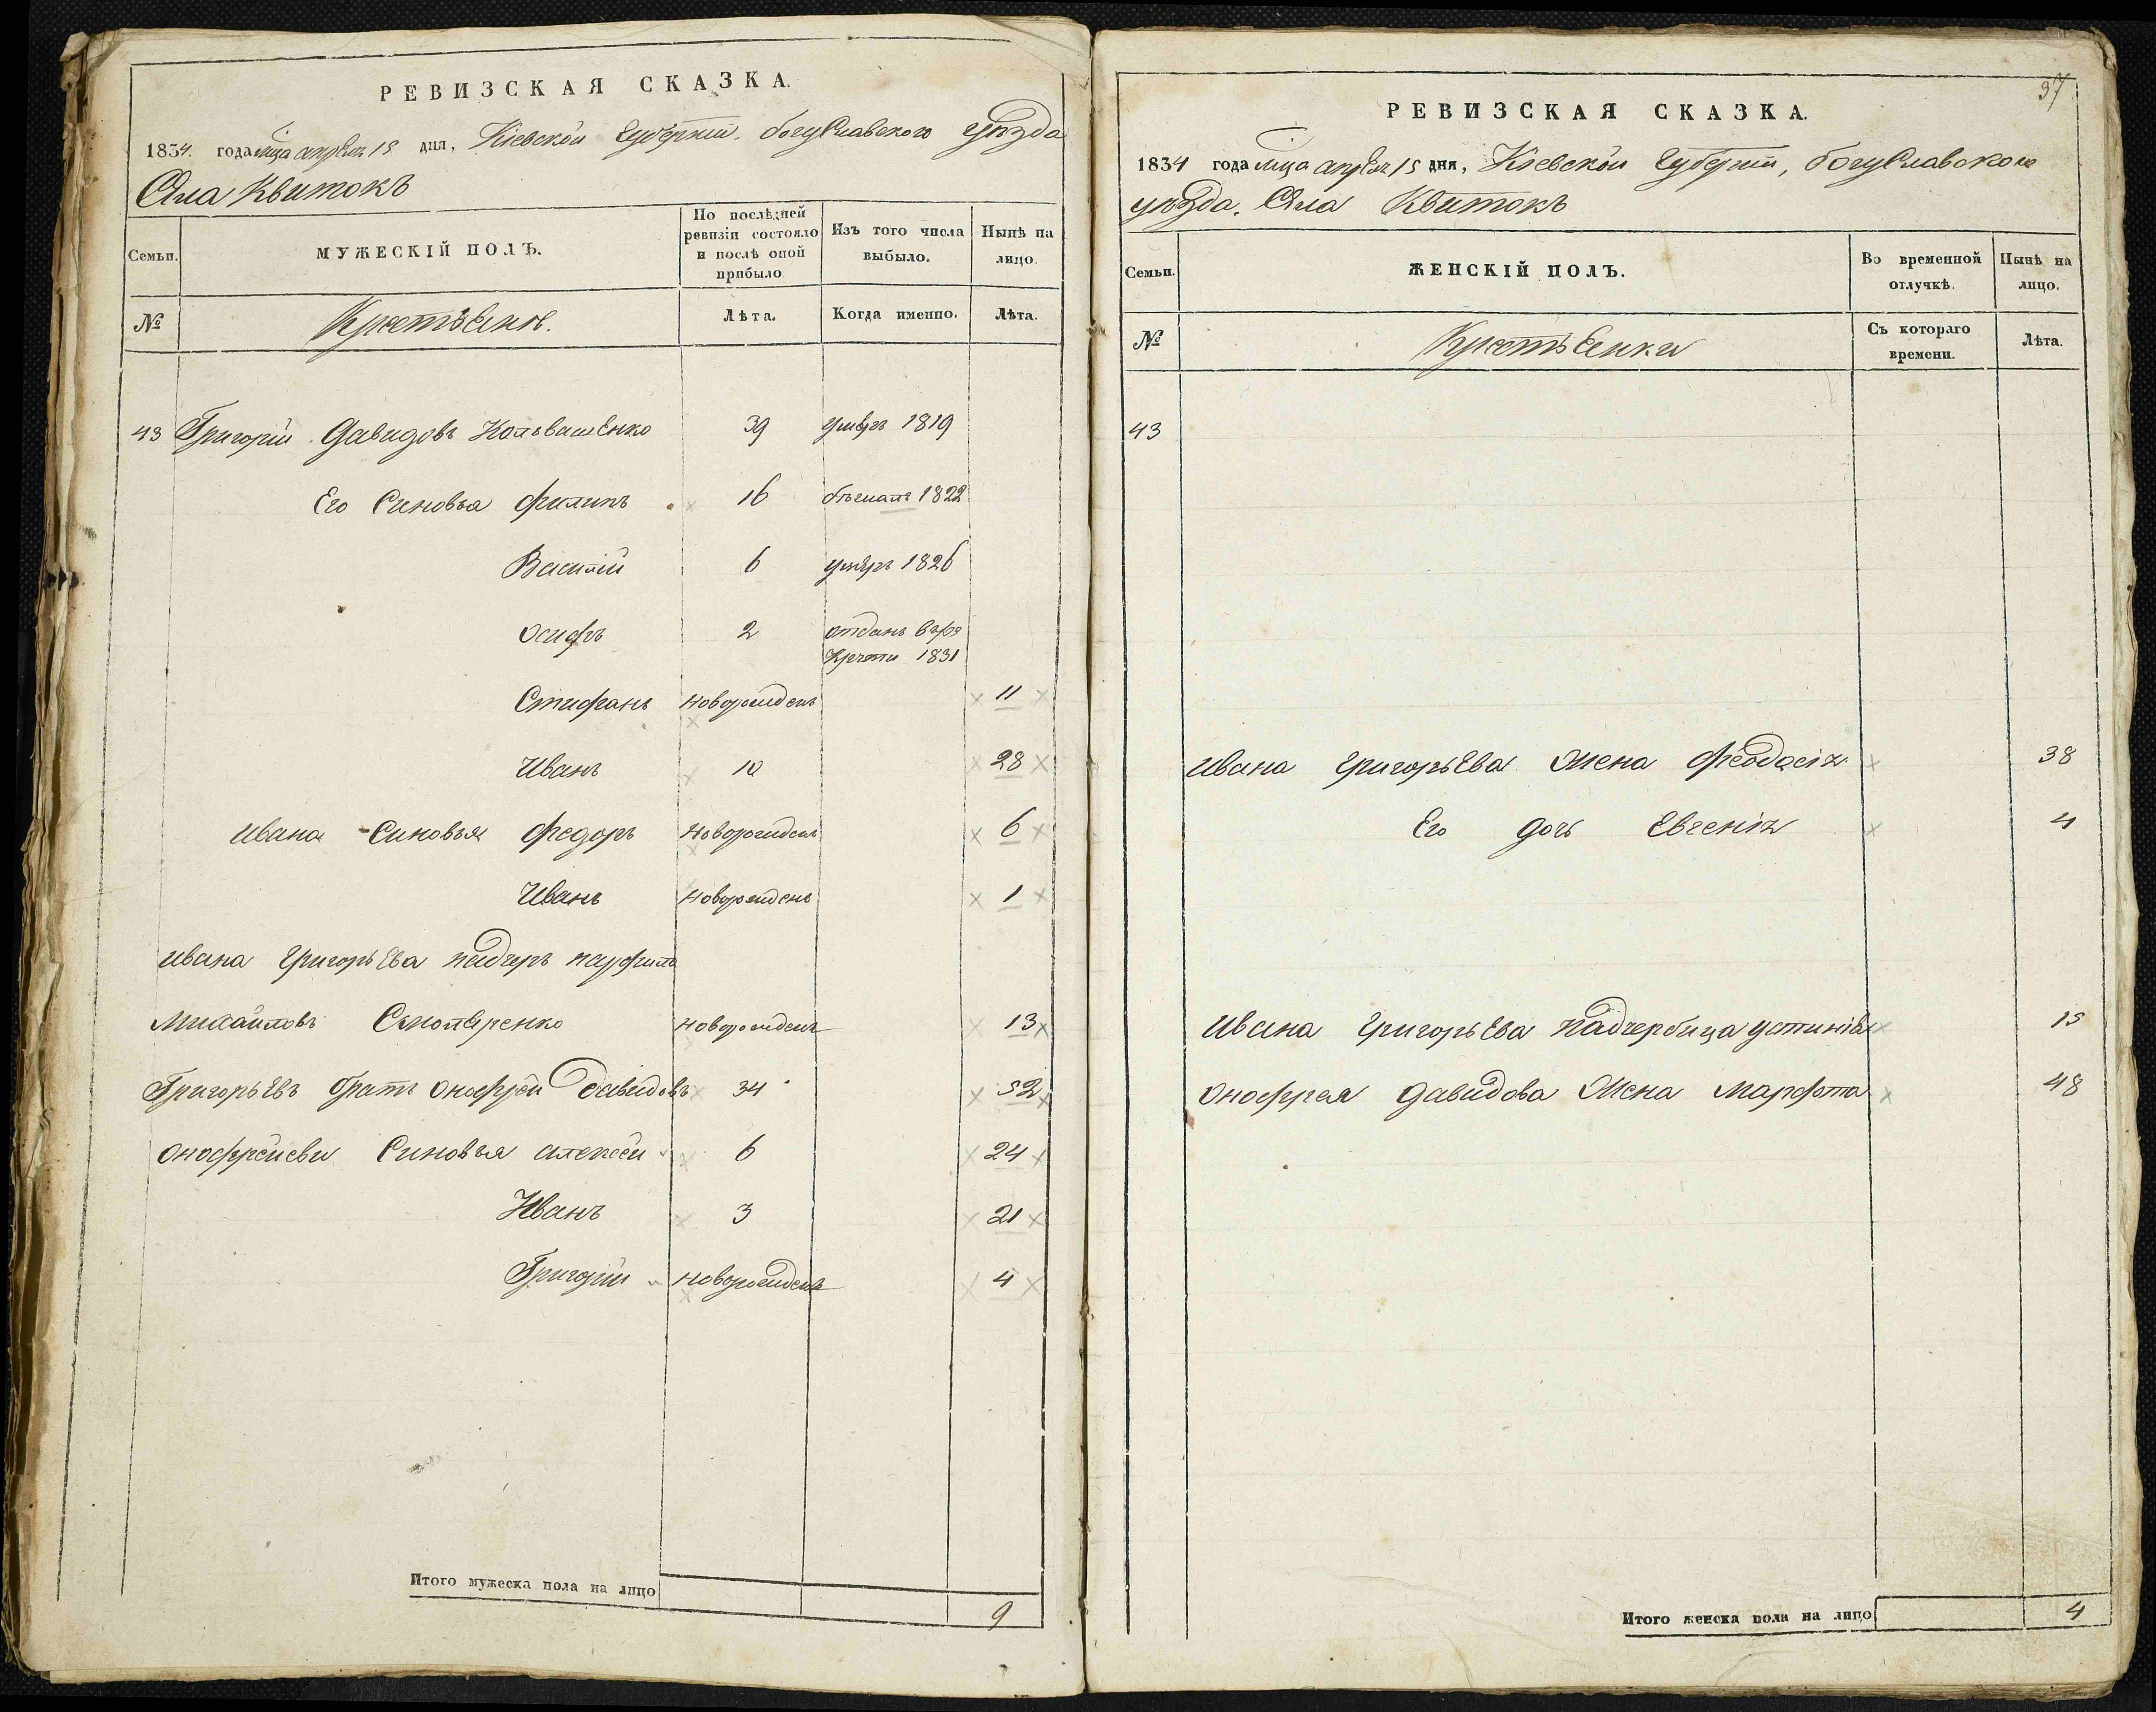 РЕВИЗСКАЯ СКАЗКА.
1834. года мца апреля 15 дня, Кіевской Губерніи. богуславского уѣзда
Села Квитокъ
Семьи.
МУЖЕСКІЙ ПОЛЪ.
По послѣдней ревизіи состояло и послѣ оной прибыло
Изъ того числа выбыло.
Нынѣ на лицо.
№
Крестьяне.
Лѣта.
Когда именно.
Лѣта.
43 Григорій Давидовъ 39 умеръ 1819
Его Синовья Филипъ 16 бѣжалъ 1822
Василій 6 умеръ 1826
Осифъ 2 отданъ в
1831
Стифанъ новорожденъ 11
Иванъ 10 28
Ивана Синовья Федоръ Новорожденъ 6
Иванъ Новорожденъ 1
Ивана Григорьева падчеръ парфилъ
Михайловъ новорожденъ 13
Григорьевъ братъ Онофрей Давидовъ 34 52
Онофрейеви Синовья алексей 6 24
Иванъ 3 21
Григорій новорожденъ 4
Итого мужеска пола на лицо 9
37
РЕВИЗСКАЯ СКАЗКА.
1834 года мца апреля 15 дня, Кіевской Губерніи, богуславского
уѣзда. Села Квитокъ
Семьи.
ЖЕНСКІЙ ПОЛЪ.
Во временной отлучкѣ.
Нынѣ на лицо.
№
Крестьянки
Съ котораго времени.
Лѣта.
43
Ивана Григорьева Жена Феодосія 38
Его дочь Евгенія 4
Ивана Григорьева падчербица 15
Онофрея Давидова Жена Марфта 48
Итого женска пола на лицо 4